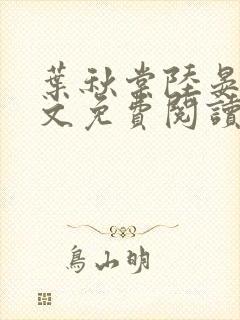 葉秋棠陸晏
文免費閱讀
鳥山明